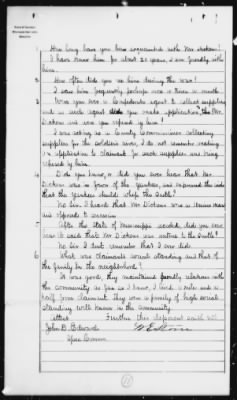 1. How long have you been acquainted with Mr. Dickens?
I have known him for about 21 years, I am friendly with him.
2. How often did you see him during the war?
I saw him frequently perhaps once or twice a month.
3. Were you ever a Confederate agent to collect supplies
and as such agent did you make application to Mr.
Dickens and were you refused by him?
I was acting as a County Commissioner collecting
supplies for the soldiers wives, I do not remember making
an application to Claimant for such supplies and being
refused by him.
4. Do you know, or did you ever hear that Mr.
Dickens was in favor of the Yankees, and expressed the wish
that the Yankees should whip the South?
No sir. I heard that Mr Dickens was a Union man
and opposed to secession
5. After the state of Mississippi seceded, did you ever
hear it said that Mr. Dickens was untrue to the South?
No sir I dont remember that I ever did.
6. What was Claimants social standing and that of
the family in the neighborhood?
It was good, they maintained friendly relations with
the community as far as I know, I lived a mile and a
half from Claimant. They were a family of high social
standing well known in the community.
Attest Further this deponent saith not
John D. Edwards
Spec Comm